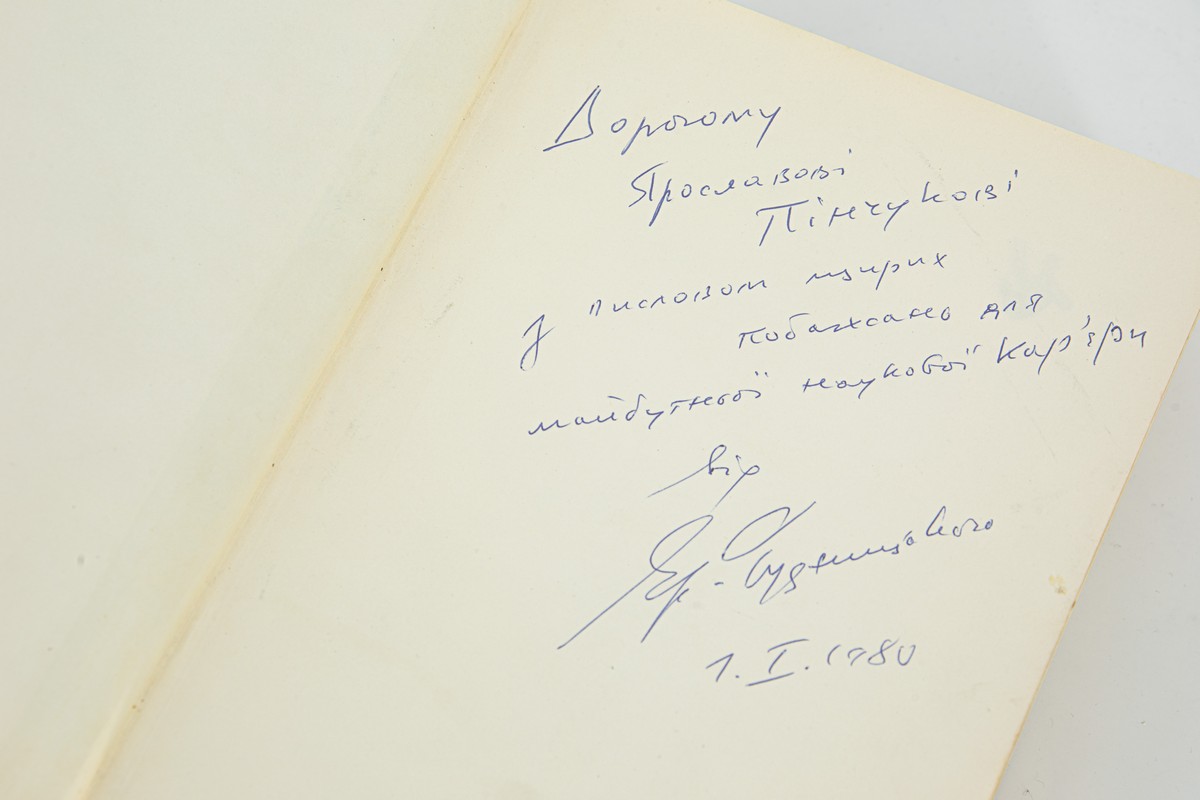 Дорогому
Ярославові
Пінчукові
З висловом щирих
побажань для
майбутньої наукової кар'єри
від
Яр. Рудницького
1.I.1980